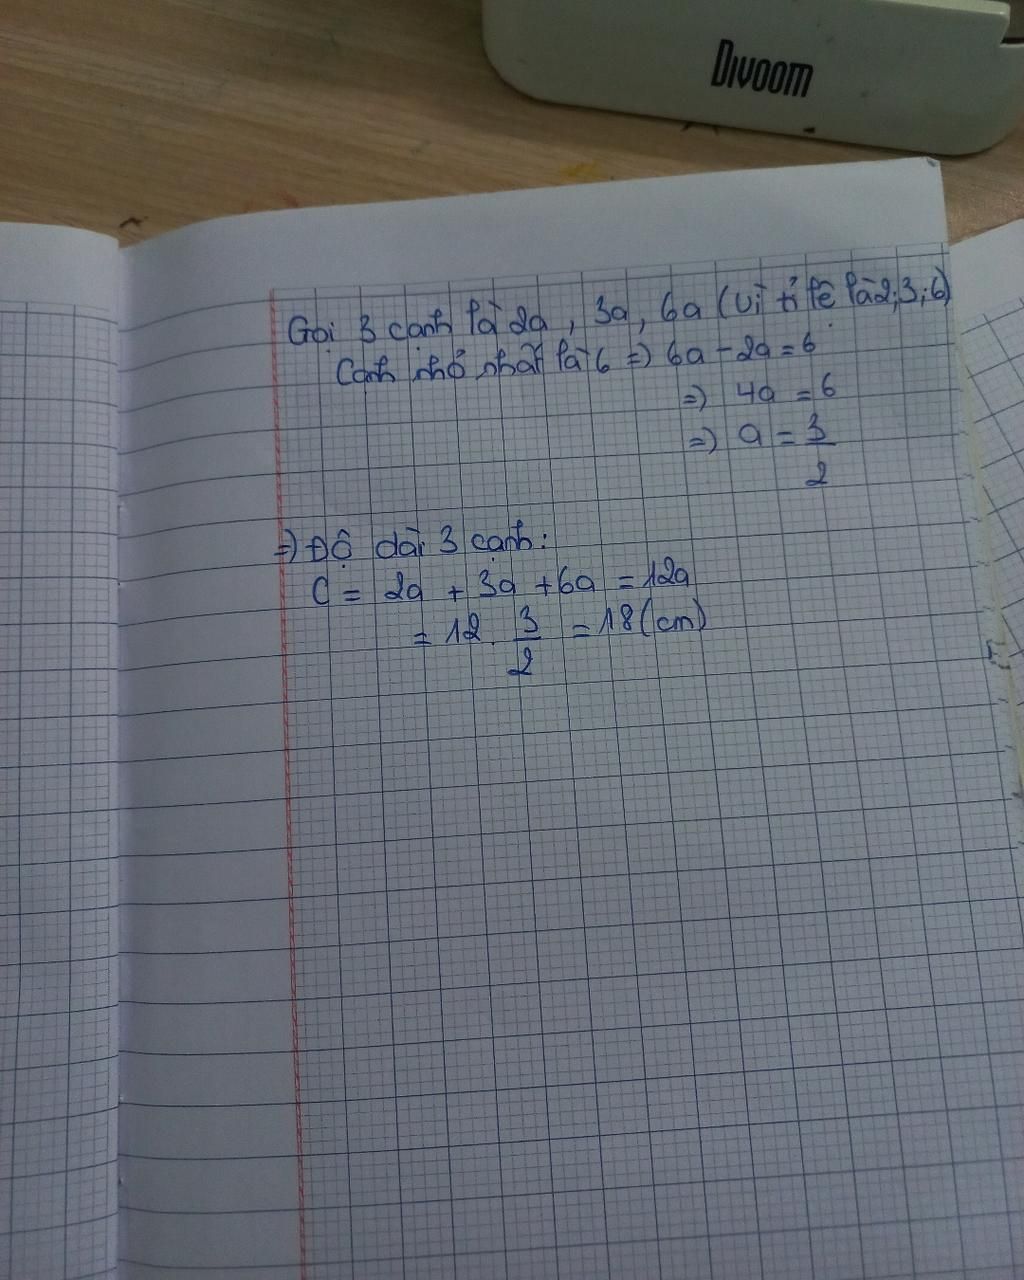 DIVOOM
Gọi 3 cạnh là 2a, 3a, 6a (vì tỉ lệ là 2;3;6)
Cạnh nhỏ nhất là 6 => 6a - 2a = 6
=> 4a = 6
=> a = 3/2
=> Độ dài 3 cạnh:
C = 2a + 3a + 6a = 12a
= 12 . 3/2 = 18 (cm)